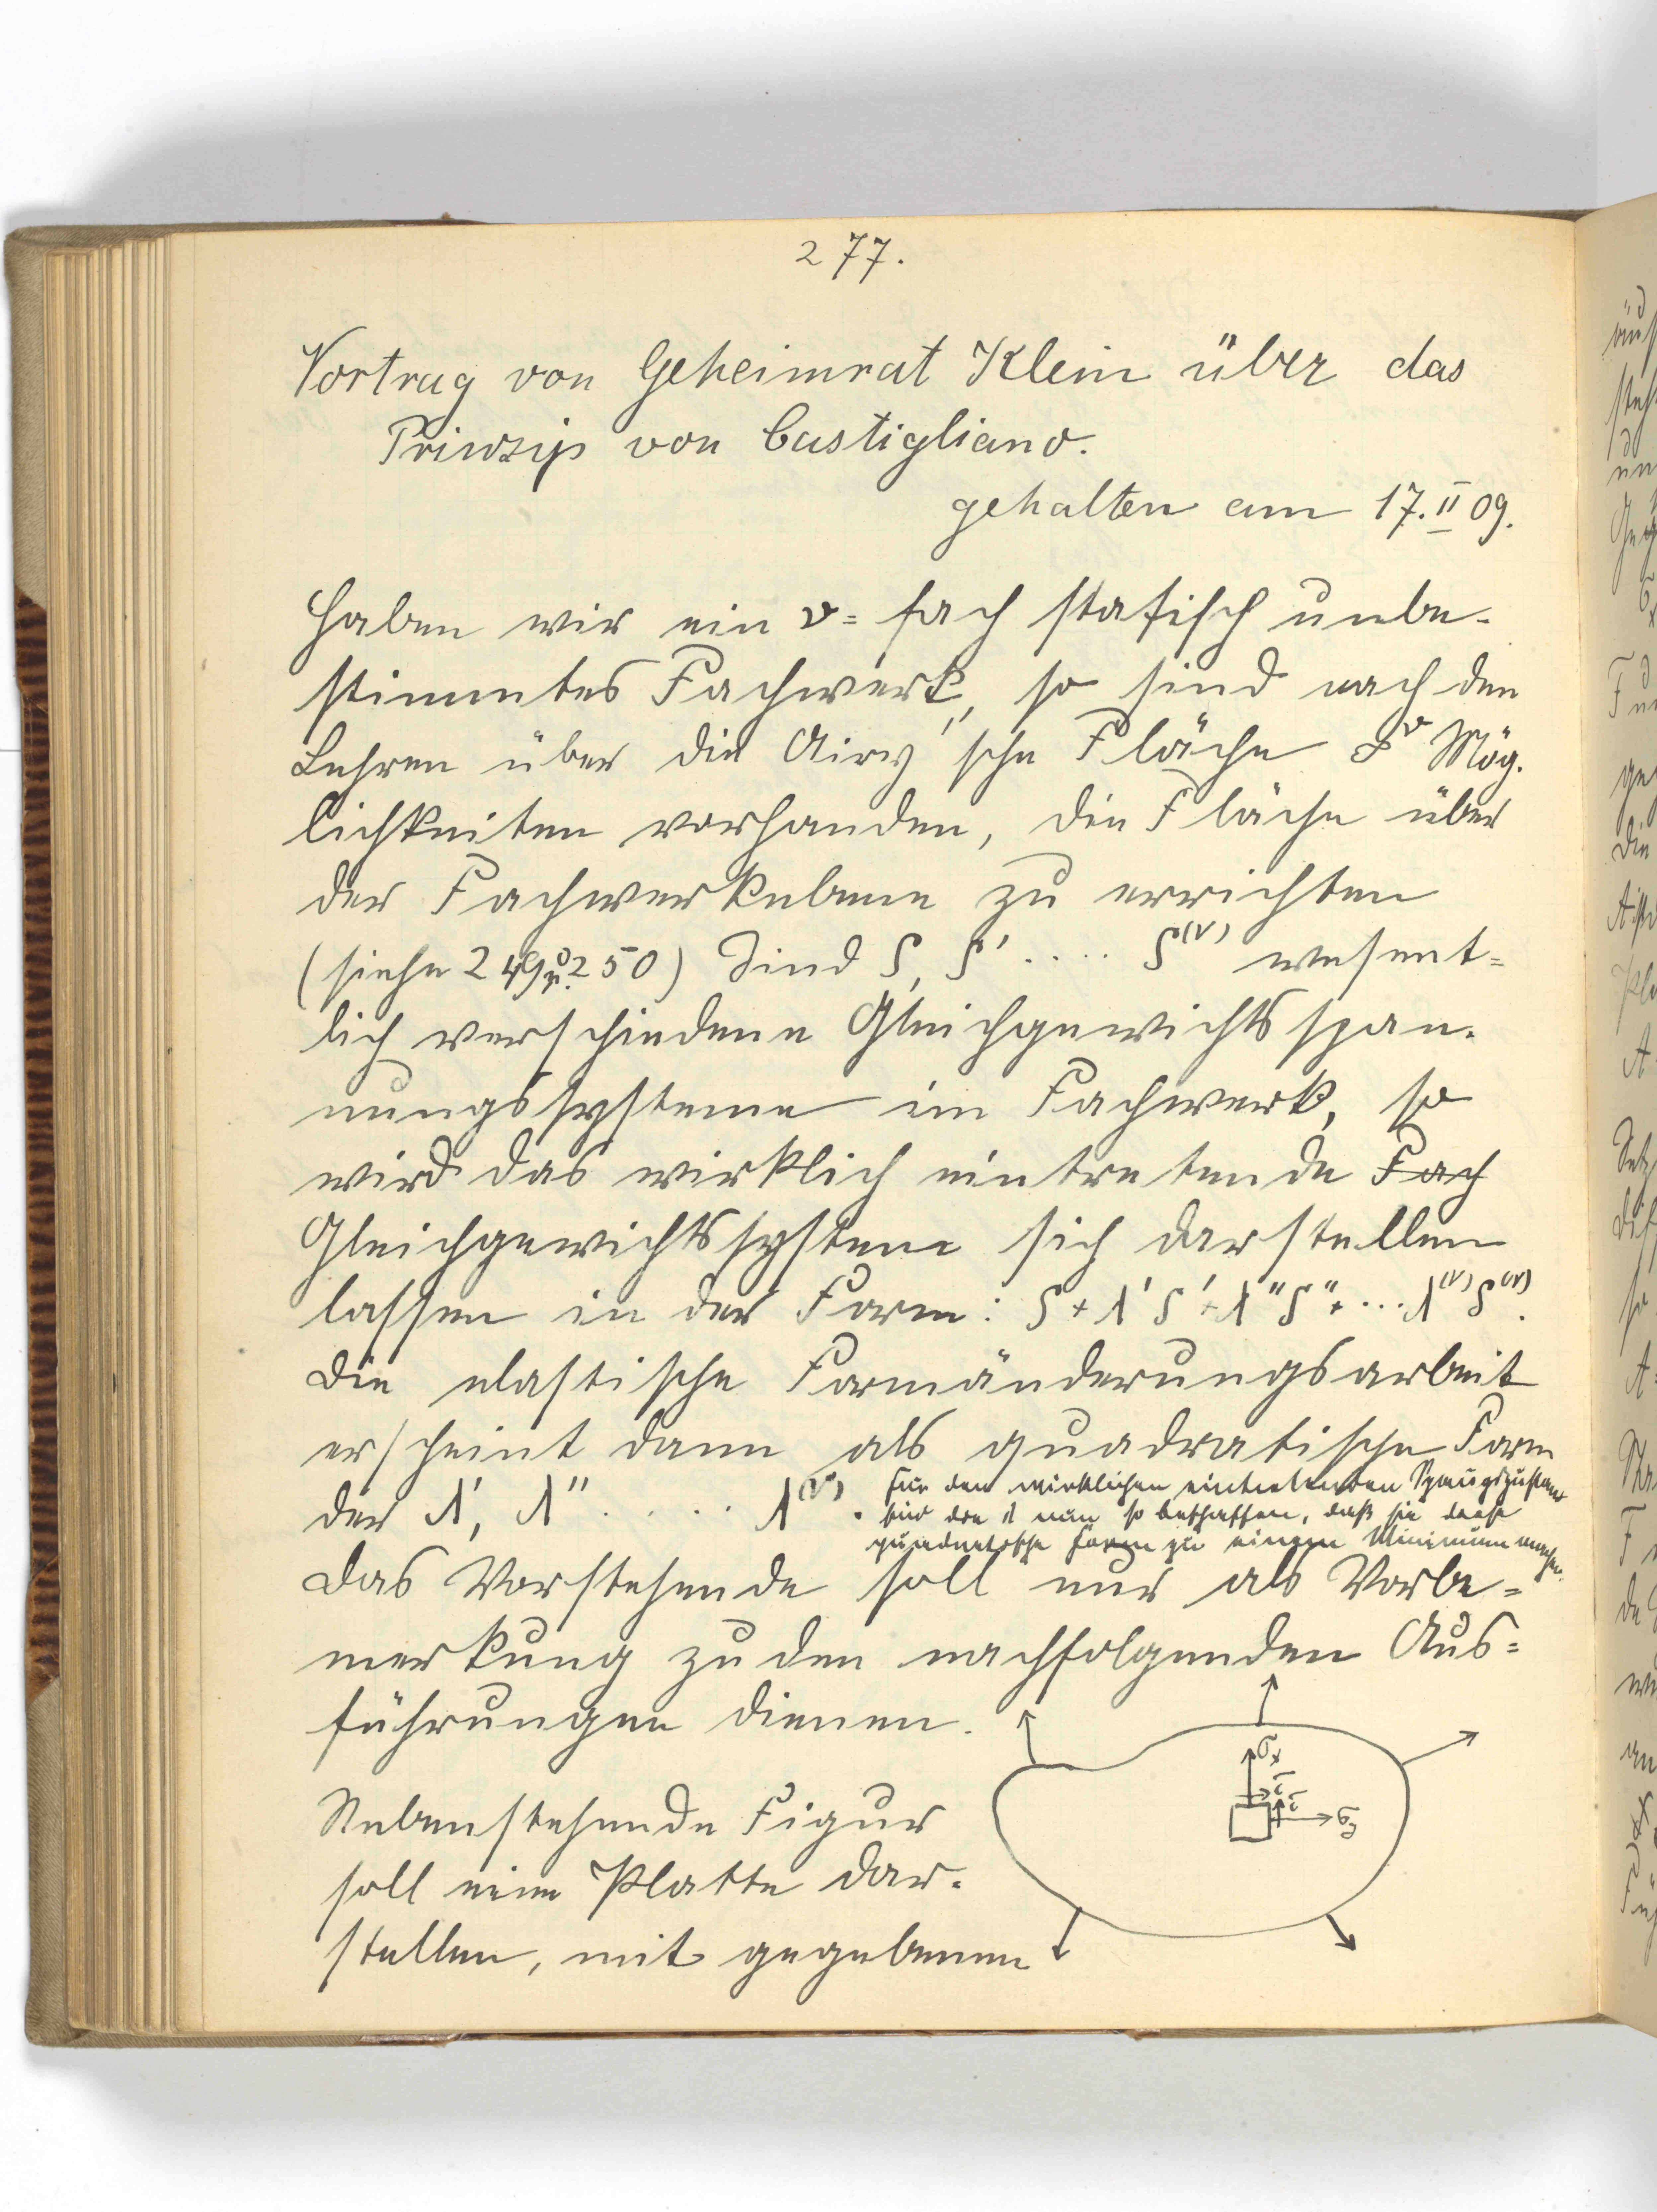 277.
Vortrag von Geheimrat Klein über das
Prinzip von Castigliano.
gehalten am 17. II 09.
Haben wir ein ν=fach statisch unbe-
stimmtes Fachwerk, so sind nach den
Lehren über die Airy'sche Fläche ∞^ν Mög-
lichkeiten vorhanden, die Fläche über
der Fachwerkebene zu errichten
(siehe 249 u. 250) Sind S, S' .... S^(ν) wesent=
lich verschiedene Gleichgewichtsspan-
nungssysteme im Fachwerk, so
wird das wirklich eintretende Fach
Gleichgewichtssystem sich darstellen
lassen in der Form: S + λ'S' + λ''S'' + ... λ^(ν)S^(ν).
Die elastische Formänderungsarbeit
erscheint dann als quadratische Form
der λ', λ'' ..... λ^(ν). Für den wirklichen eintretenden Spanngszustand
sind die λ nun so beschaffen, daß sie diese
quadratische Form zu einem Minimum machen.
Das Vorstehende soll nur als Vorbe=
merkung zu den nachfolgenden Aus=
führungen dienen.
σx
τ
τ
σy
Nebenstehende Figur
soll eine Platte dar-
stellen, mit gegebenen